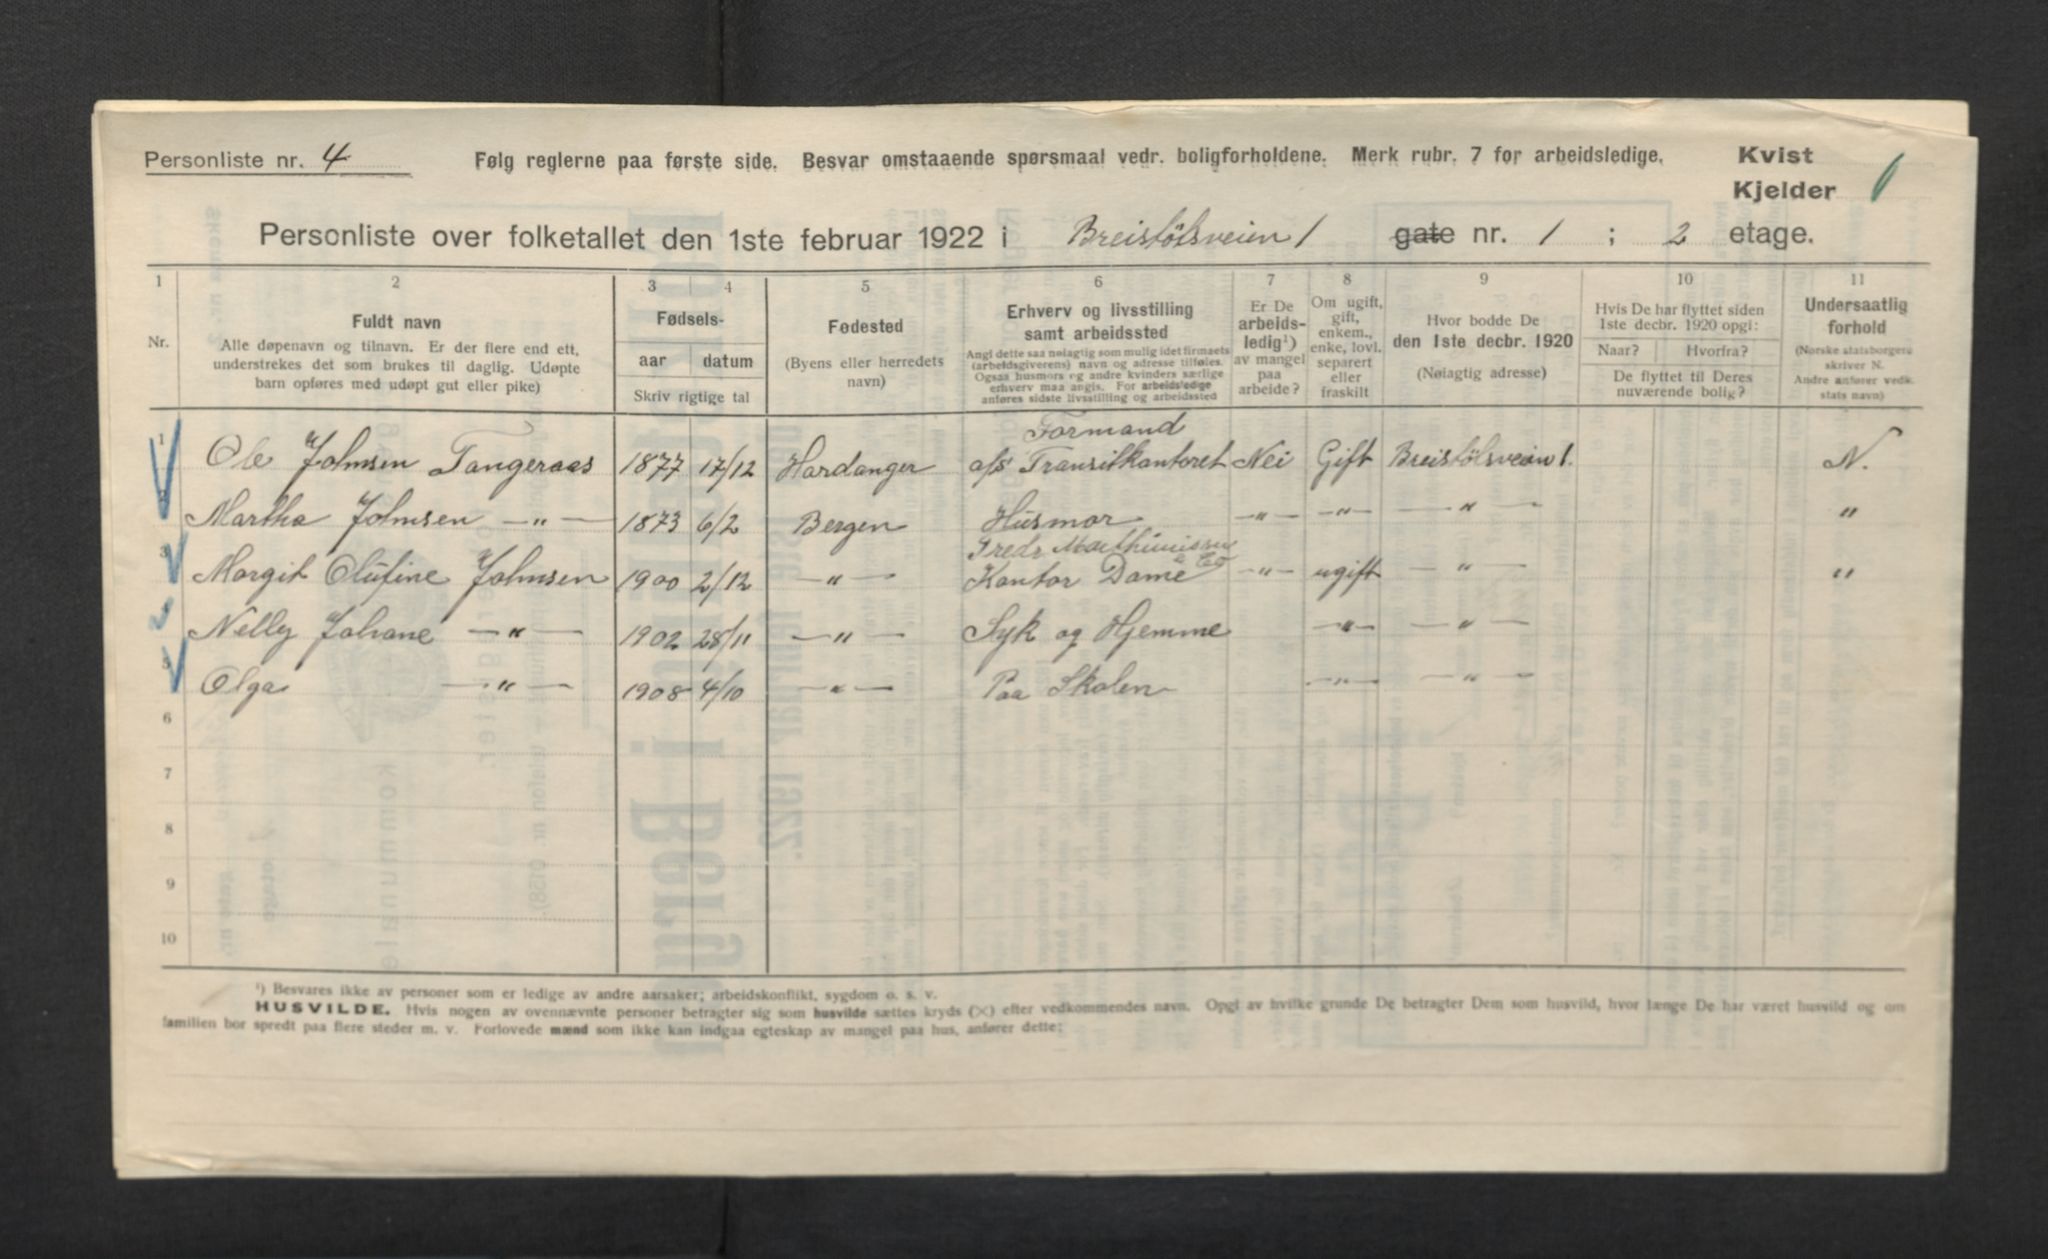 Personliste nr. 4 Følg reglerne paa første side. Besvar omstaaende spørsmaal vedr. boligforholdene. Merk rubr. 7 for arbeidsledige. Kvist
Kjelder
Personliste over folketallet den 1ste februar 1922 i Breistølsveien 1 gate nr. 1 ; 2 etage.
1 2 3 4 5 6 7 8 9 10 11
Nr.
Fuldt navn
Alle døpenavn og tilnavn. Er der flere end ett,
understrekes det som brukes til daglig. Udøpte
barn opføres med udøpt gut eller pike)
Fødsels-
aar datum
Skriv rigtige tal
Fødested
(Byens eller herredets
navn)
Erhverv og livsstilling
samt arbeidssted
Angi dette saa nøiagtig som mulig idet firmaets
(arbeidsgiverens) navn og adresse tilføies.
Ogsaa husmors og andre kvinders særlige
erhverv maa angis. For arbeidsledige
anføres sidste livsstilling og arbeidssted
Er De
arbeids-
ledig¹)
av mangel
paa
arbeide?
Om ugift,
gift,
enkem.,
enke, lovl.
separert
eller
fraskilt
Hvor bodde De
den 1ste decbr. 1920
(Nøiagtig adresse)
Hvis De har flyttet siden
1ste decbr. 1920 opgi:
Naar? Hvorfra?
De flyttet til Deres
nuværende bolig?
Undersaatlig
forhold
(Norske statsborgere
skriver N.
Andre anfører vedk.
stats navn)
Formand
1 Ole Johnsen Tangeraas 1877 17/12 Hardanger a/s Transitkantoret Nei Gift Breistølsveien 1. N.
2 Martha Johnsen —"— 1873 6/2 Bergen Husmor —"— —"— —"— "
Fredr. Marthinissen
& Co
3 Margit Olufine Johnsen 1900 2/12 —"— Kantor Dame —"— ugift —"— "
Nelly Johane —"— 1902 28/11 —"— Syk og Hjemme —"— —"—
5 Olga —"— 1908 4/10 —"— Paa Skolen —"— —"—
6
7
8
9
10
¹) Besvares ikke av personer som er ledige av andre aarsaker; arbeidskonflikt, sygdom o. s. v.
HUSVILDE. Hvis nogen av ovennævnte personer betragter sig som husvilde sættes kryds (×) efter vedkommendes navn. Opgi av hvilke grunde De betragter Dem som husvild, hvor længe De har været husvild og om
familien bor spredt paa flere steder m. v. Forlovede mænd som ikke kan indgaa egteskap av mangel paa hus, anfører dette: